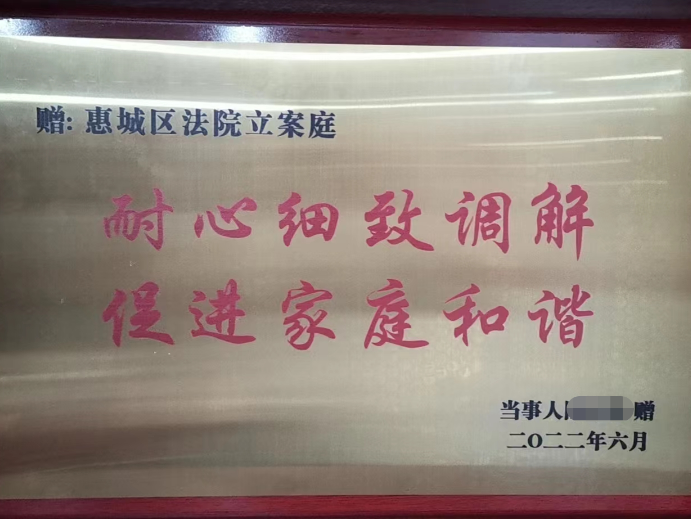 赠:惠城区法院立案庭
耐心细致调解
促进家庭和谐
当事人 赠
二O二二年六月